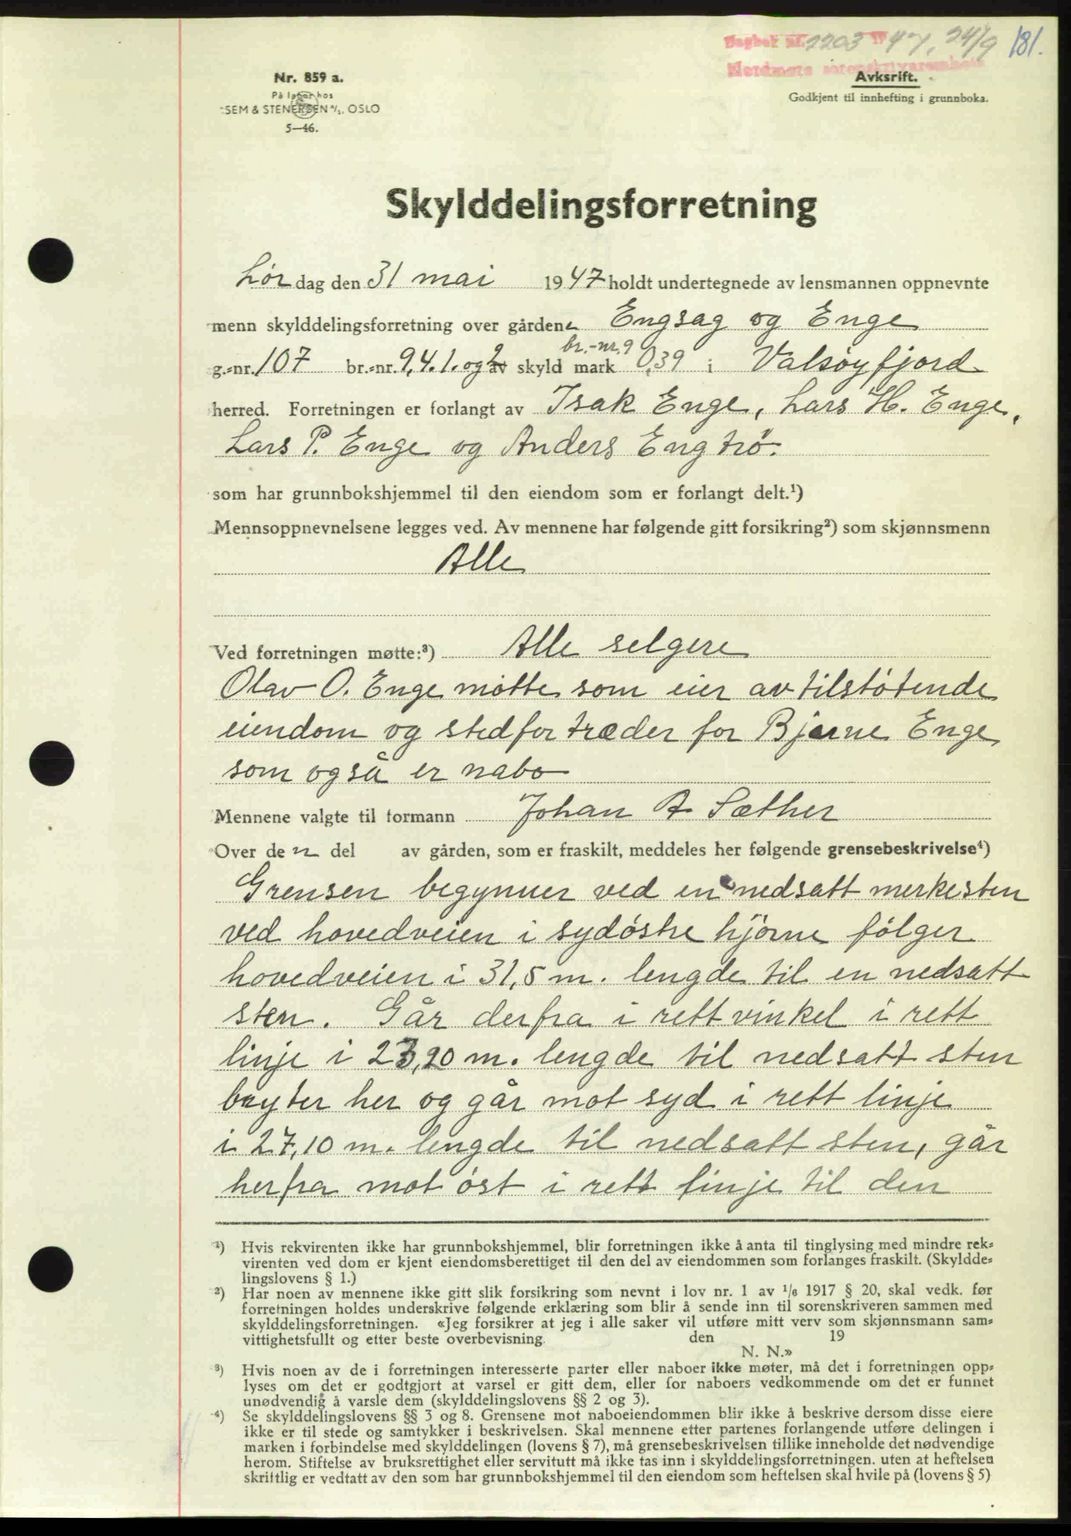 Dagbok nr. 2203 1947, 24/9 181.
Nordmøre sorenskriverembete
Nr. 859 a.
På lager hos
SEM & STENERSEN A/S. OSLO
5—46.
Avskrift.
Godkjent til innhefting i grunnboka.
Skylddelingsforretning
Lørdag den 31 mai 1947 holdt undertegnede av lensmannen oppnevnte
menn skylddelingsforretning over gårdene Engsag og Enge
br.-nr. 9
g.-nr. 107 br.-nr. 9,4.1. og 2 av skyld mark 0,39 i Valsøyfjord
herred. Forretningen er forlangt av Isak Enge, Lars H. Enge,
Lars P. Enge og Anders Engtrö.
som har grunnbokshjemmel til den eiendom som er forlangt delt.¹)
Mennsoppnevnelsene legges ved. Av mennene har følgende gitt forsikring²) som skjønnsmenn
Alle
Ved forretningen møtte:³) Alle selgere
Olav O. Enge møtte som eier av tilstøtende
eiendom og stedfortræder for Bjarne Enge
som også er nabo
Mennene valgte til formann Johan A Sæther
Over den del av gården, som er fraskilt, meddeles her følgende grensebeskrivelse⁴)
Grensen begynner ved en nedsatt merkesten
ved hovedveien i sydöstre hjörne fölger
hovedveien i 31,5 m. lengde til en nedsatt
sten. Går derfra i rett vinkel i rett
linje i 23,20 m. lengde til nedsatt sten
bryter her og går mot syd i rett linje
i 27,10 m. lengde til nedsatt sten, går
herfra mot öst i rett linje til den
¹) Hvis rekvirenten ikke har grunnbokshjemmel, blir forretningen ikke å anta til tinglysing med mindre rek-
virenten ved dom er kjent eiendomsberettiget til den del av eiendommen som forlanges fraskilt. (Skyldde-
lingslovens § 1.)
²) Har noen av mennene ikke gitt slik forsikring som nevnt i lov nr. 1 av 1/6 1917 § 20, skal vedk. før
forretningen holdes underskrive følgende erklæring som blir å sende inn til sorenskriveren sammen med
skylddelingsforretningen. «Jeg forsikrer at jeg i alle saker vil utføre mitt verv som skjønnsmann sam-
vittighetsfullt og etter beste overbevisning. den 19
N. N.»
³) Hvis noen av de i forretningen interesserte parter eller naboer ikke møter, må det i forretningen opp-
lyses om det er godtgjort at varsel er gitt dem, eller for naboers vedkommende om det er funnet
unødvendig å varsle dem (skylddelingslovens §§ 2 og 3).
⁴) Se skylddelingslovens §§ 3 og 8. Grensene mot naboeiendommen blir ikke å beskrive dersom disse eiere
ikke er til stede og samtykker i beskrivelsen. Skal mennene etter partenes forlangende utføre delingen i
marken i forbindelse med skylddelingen (lovens § 7), må grensebeskrivelsen tillike inneholde det nødvendige
herom. Stiftelse av bruksrettighet eller servitutt må ikke tas inn i skylddelingsforretningen. uten at heftelsen
skriftlig er vedtatt av den som har grunnbokshjemmel til den eiendom som heftelsen skal hvile på (lovens § 5)